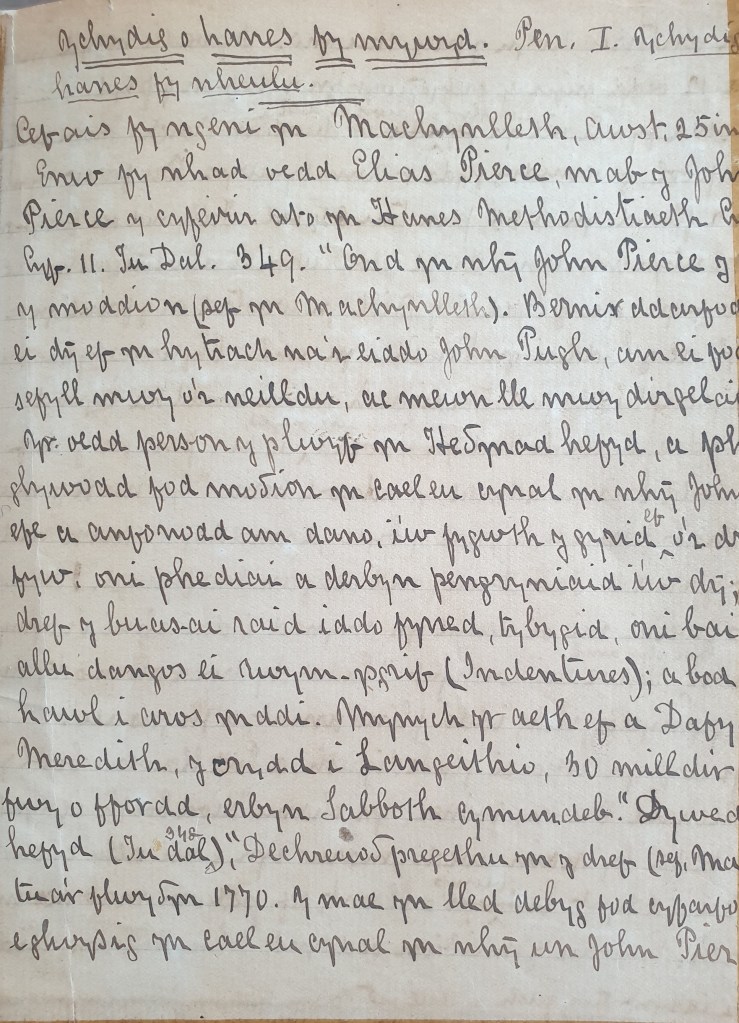 Ychydig o hanes fy mywyd. Pen. I. Ychydig
hanes fy nheulu.
Cefais fy ngeni yn Machynlleth, Awst, 25in
Enw fy nhad oedd Elias Pierce, mab y Joh
Pierce y cyfeirir ato yn Hanes Methodistiaeth C
Cyf. 11. Tu Dal. 349. "Ond yn nhŷ John Pierce y
y moddion (sef yn Machynlleth). Bernir ddarfod
ei dŷ ef yn hytrach na'r eiddo John Pugh, am ei fod
sefyll mwy o'r neilldu, ac mewn lle mwy dirgelai
Yr oedd person y plwyf yn Heδynad hefyd, a ph
glywodd fod moδion yn cael eu cynal yn nhŷ John
efe a anfonodd am dano, i'w fygwth y gyrid ef o'r dr
fyw, oni phediai a derbyn pengryniaid i'w dŷ;
dref y buasai raid iddo fyned, tybygid, oni bai
allu dangos ei rwym-ysgrif (Indentures); a bod
hawl i aros ynddi. Mynych yr aeth ef a Dafy
Meredith, y crydd i Langeithio, 30 milldir
fwy o ffordd, erbyn Sabboth cymundeb." Dywed
hefyd (Tu dal 348), "Dechreuoδ pregethu yn y dref (sef, Ma
tua'r flwyδyn 1770. Y mae yn lled debyg fod cyfarfo
eglwysig yn cael eu cynal yn nhŷ un John Pier